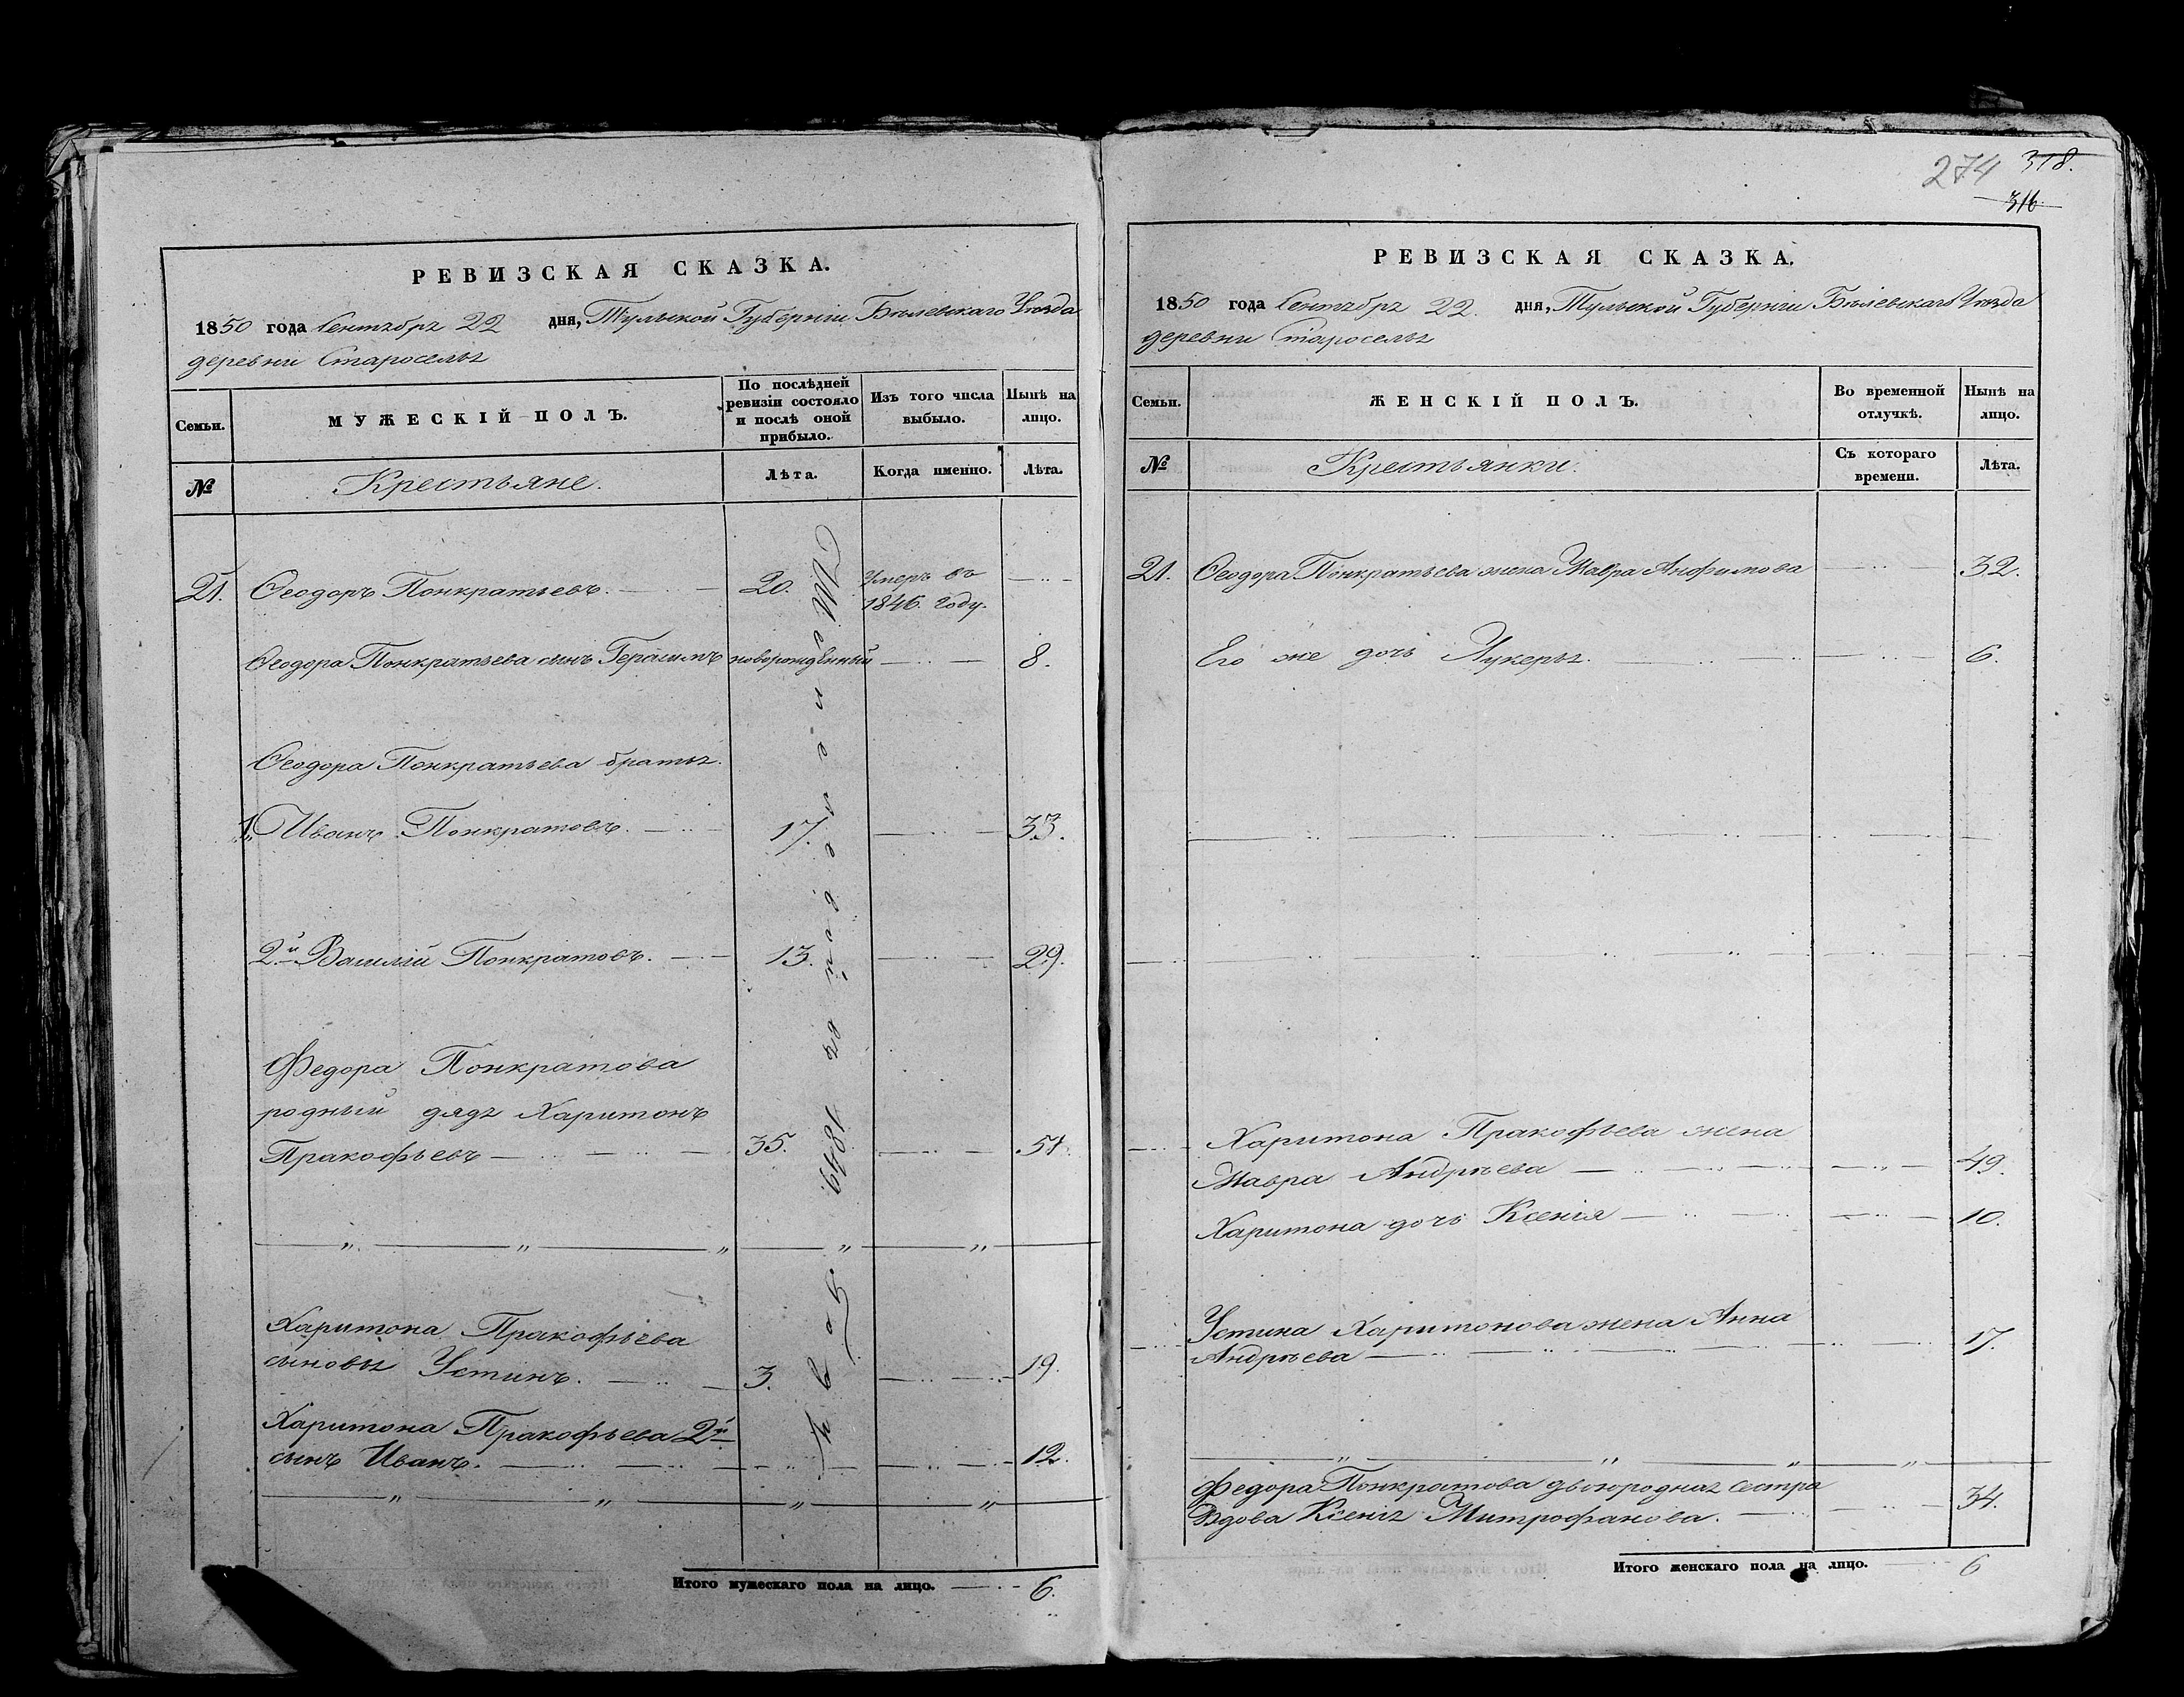 РЕВИЗСКАЯ СКАЗКА.
1850 года Сентября 22 дня, Тульской Губерніи Бѣлевскаго Уѣзда
деревни Староселья
Семьи.
МУЖЕСКІЙ ПОЛЪ.
По послѣдней ревизіи состояло и послѣ оной прибыло.
Изъ того числа выбыло.
Нынѣ на лицо.
№
Крестьяне.
Лѣта.
Когда именно.
Лѣта.
21. Ѳеодоръ Понкратьевъ. 20. Умеръ въ
1846. году.
Ѳеодора Понкратьева сынъ Герасимъ новорожденный 8.
Ѳеодора Понкратьева братья.
1, Иванъ Понкратовъ. 17. 33.
2.й Василій Понкратовъ. 13. 29.
Федора Понкратова
родный дядя Харитонъ
Пракофьевъ 35. 51
Харитона Пракофьева
сыновья Устинъ. 3. 19.
Харитона Пракофьева 2й
сынъ Иванъ. 12.
1849
Итого мужескаго пола на лицо. 6.
274 318.
316
РЕВИЗСКАЯ СКАЗКА.
1850 года Сентября 22. дня, Тульской Губерніи Бѣлевскаго Уѣзда
деревни Староселья
Семьи.
ЖЕНСКІЙ ПОЛЪ.
Во временной отлучкѣ.
Нынѣ на лицо.
№
Крестьянки.
Съ котораго времени.
Лѣта.
21. Ѳеодора Понкратьева жена Мавра Анфимова 32.
Его же дочь Лукерья. 6.
Харитона Пракофьева жена
Мавра Андрѣева 49.
Харитона дочь Ксенія 10.
Устина Харитонова жена Анна
Андрѣева 17.
Федора Понкратова двоюродная сестра
Вдова Ксенія Митрофанова. 34.
Итого женскаго пола на лицо. 6